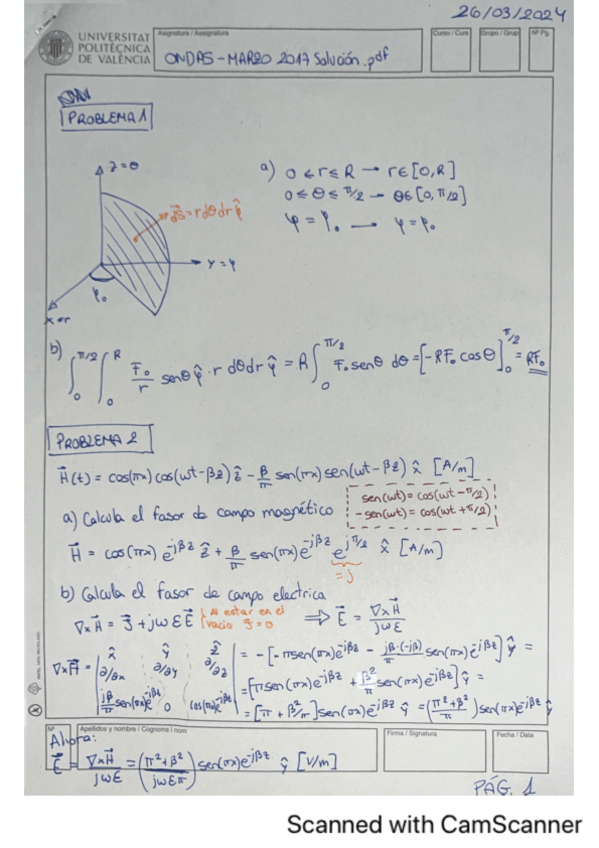 26/03/2024
UNIVERSITAT
POLITÈCNICA
DE VALÈNCIA
Asignatura / Assignatura
Curso / Curs
Grupo / Grup
Nº Pg.
ONDAS - MARZO 2017 Solución.pdf
PROBLEMA 1
z=θ
dS⃗ = r dθ dr φ̂
y=φ
φ₀
x=r
a) 0 ≤ r ≤ R → r∈[0,R]
0 ≤ θ ≤ π/2 → θ∈[0,π/2]
φ = φ₀ → φ = φ₀
b) ∫₀^{π/2} ∫₀^R F₀/r senθ φ̂ · r dθ dr φ̂ = R ∫₀^{π/2} F₀ senθ dθ = [-RF₀ cosθ]₀^{π/2} = RF₀
PROBLEMA 2
H⃗(t) = cos(πx) cos(ωt-βz) ẑ - β/π sen(πx) sen(ωt-βz) x̂ [A/m]
a) Calcula el fasor de campo magnético
sen(ωt) = cos(ωt-π/2)
-sen(ωt) = cos(ωt+π/2)
H⃗ = cos(πx) e^{-jβz} ẑ + β/π sen(πx) e^{-jβz} e^{jπ/2} x̂ [A/m]
= j
b) Calcula el fasor de campo electrica
∇×H⃗ = J⃗ + jωεE⃗
estar en el
vacio J⃗=0
⇒ E⃗ = ∇×H⃗ / jωε
∇×H⃗ = | x̂ ŷ ẑ |
| ∂/∂x ∂/∂y ∂/∂z |
| jβ/π sen(πx)e^{-jβz} 0 cos(πx)e^{-jβz} |
= -[-πsen(πx)e^{-jβz} - jβ·(-jβ)/π sen(πx)e^{-jβz}] ŷ =
= [πsen(πx)e^{-jβz} + β²/π sen(πx)e^{-jβz}] ŷ =
= [π + β²/π] sen(πx)e^{-jβz} ŷ = (π²+β²/π) sen(πx)e^{-jβz} ŷ
Nº
Apellidos y nombre / Cognoms i nom
Firma / Signatura
Fecha / Data
Ahora:
E⃗ = ∇×H⃗ / jωε = (π²+β² / jωεπ) sen(πx)e^{-jβz} ŷ [V/m]
PÁG. 1
Scanned with CamScanner